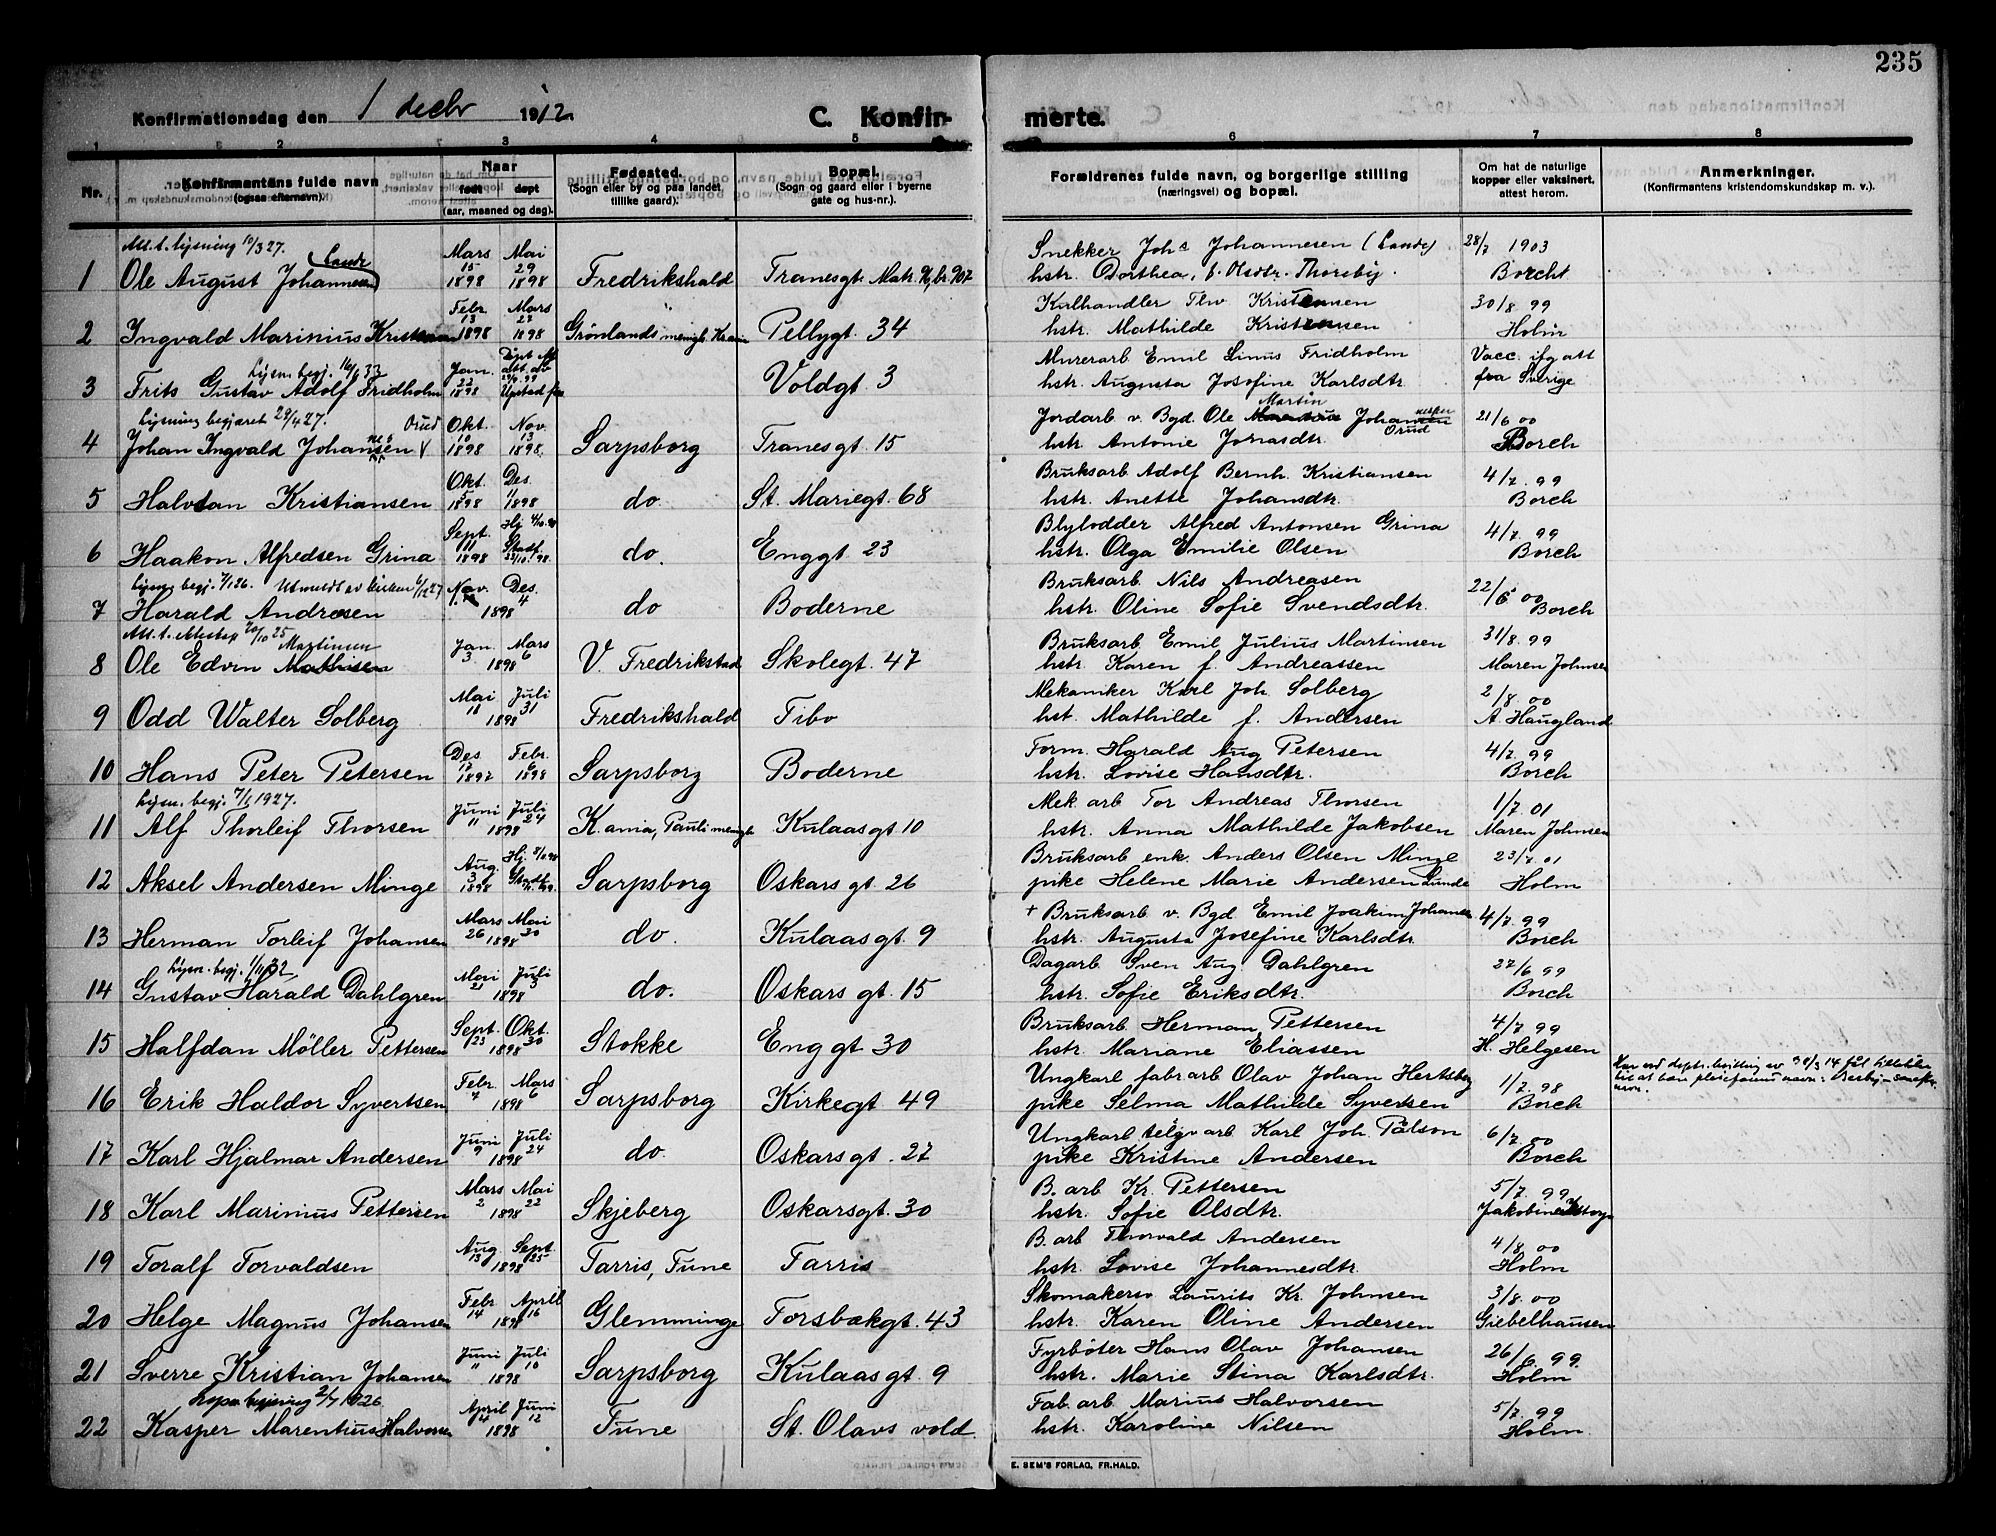 235
Konfirmationsdag den 1 decbr 1912
C. Konfirmerte.
1 2 3 4 5 6 7 8
Nr.
Konfirmantens fulde navn (ogsaa efternavn).
Naar født døpt (aar, maaned og dag).
Fødested. (Sogn eller by og paa landet tillike gaard).
Bopæl. (Sogn og gaard eller i byerne gate og hus-nr.).
Forældrenes fulde navn, og borgerlige stilling (næringsvei) og bopæl.
Om hat de naturlige kopper eller vaksinert, attest herom.
Anmerkninger. (Konfirmantens kristendomskundskap m. v.).
Att. t. lysning 10/3 27.
1 Ole August Johannesen (Lande) Mars 15 1898 Mai 29 1898 Fredrikshald Tranesgt. Matr. br. 907 Snekker Johs Johannesen (Lande) hstr. Dorthea, f. Olsdtr. Thoreby. 28/7 1903 Borcht
2 Ingvald Marinius Kristensen Febr. 13 1898 Mars 23 1898 Grønlands menigh. Kr.ania Pellygt. 34 Kulhandler Thv. Kristensen hstr. Mathilde Kristensen 30/8 99 Holm
Lysn. begj. 16/6 33
3 Frits Gustav Adolf Fridholm Jan. 22 1898 Voldgt. 3 Murerarb. Emil Linus Fridholm hstr. Augusta Josefine Karlsdtr. Vacc. ifg att fra Sverige
Lysning begjæret 29/4 27.
4 Johan Ingvald Johansen Orud Okt. 10 1898 Nov. 13 1898 Sarpsborg Tranesgt. 15 Jordarb v. Bgd. Ole Martin Johannesen Orud hstr. Antonie Jonasdtr. 21/6 00 Borch
5 Halvdan Kristiansen Okt. 5 1898 Des. 11 1898 do. St. Mariegt. 68 Bruksarb. Adolf Bernh. Kristiansen hstr. Anette Johansdtr. 4/7 99 Borch
6 Haakon Alfredsen Grina Sept. 11 1898 Hj. 4/10 98 Stadf. 23/10 98 do. Enggt 23 Blylodder Alfred Antonsen Grina hstr. Olga Emilie Olsen 4/7. 99 Borch
Lysn. begj. 7/1 26. Utmeldt av kirken 6/12 27
7 Harald Andresen Nov. 1898 Des. 4 do Boderne Bruksarb Nils Andreasen hstr. Oline Sofie Svendsdtr. 22/6 00 Borch
Att. t. ekteskap 20/10 25
8 Ole Edvin Mathisen Martinsen Jan. 3 Mars 6 1898 V. Fredrikstad Skolegt. 47 Bruksarb. Emil Julius Martinsen hstr. Karen f. Andreassen 31/8. 99 Maren Johnsen
9 Odd Walter Solberg Mai 18 Juli 31 1898 Fredrikshald Tibo Mekaniker Karl Joh. Solberg hst. Mathilde f. Andersen 2/8 00 A. Haugland
10 Hans Peter Petersen Des 17 1897 Febr. 6 1898 Sarpsborg Boderne Form. Harald Aug Petersen hstr. Lovise Hansdtr. 4/7. 99 Borch
Lysn. begj. 7/1 1927.
11 Alf Thorleif Thorsen Juni 11 Juli 24 1898 K.ania, Pauli menigh Kulaasgt 10 Mek arb Tor Andreas Thorsen hstr. Anna Mathilde Jakobsen 1/7. 01 Maren Johnsen
12 Aksel Andersen Minge Aug. 3 1898 Sarpsborg Oskars gt. 26 Bruksarb enk. Anders Olsen Minge pike Helene Marie Andersen Lunde 23/7. 01 Holm
13 Herman Torleif Johansen Mars 26 Mai 30 1898 do. Kulaasgt. 9 + Bruksarb v. Bgd. Emil Joakim Johansen hstr. Augusta Josefine Karlsdtr. 4/7. 99 Borch
Lysn. begj. 1/11 32
14 Gustav Harald Dahlgren Mai 21 Juli 3 1898 do. Oskars gt. 15 Dagarb Sven Aug. Dahlgren hstr. Sofie Eriksdtr. 27/6 99 Borch
15 Halfdan Möller Pettersen Sept. 23 Okt. 30 1898 Stokke Enggt 30 Bruksarb Herman Pettersen hstr. Mariane Eliassen 4/7 99 H. Helgesen
16 Erik Haldor Syvertsen Febr. 7 Mars 6 1898 Sarpsborg Kirkegt. 49 Ungkarl fabrarb Olav Johan Hertsberg pike Selma Mathilde Syvertsen 1/7. 98 Borch
Har ved dept. bevilling av 30/3 14 fåt tilladelse til at bære pleieforældrenes navn:
17 Karl Hjalmar Andersen Juni 9 Juli 24 1898 do. Oskarsgt. 27 Ungkarl telgv arb Karl Joh. Pålson pike Kristine Andersen 6/7 00 Borch
18 Karl Marinius Pettersen Mars 2 Mai 22 1898 Skjeberg Oskarsgt. 30 B. arb Kr. Pettersen hstr. Sofie Olsdtr. 5/7. 99 Jakobine
19 Toralf Torvaldsen Aug. 13 Sept 25 1898 Tarris, Tune Tarris B. arb Thorvald Andersen hstr. Lovise Johannesdtr. 4/8 00 Holm
20 Helge Magnus Johansen Febr 14 April 16 1898 Glemminge Torsbækgt. 43 Skomakersv Laurits Kr. Johnsen hstr. Karen Oline Andersen 3/8. 00 Giebelhausen
21 Sverre Kristian Johansen Juni 11 Juli 10 1898 Sarpsborg Kulaasgt. 9 Fyrböter Hans Olav Johansen hstr. Marie Stina Karlsdtr. 26/6. 99. Holm
lysning 2/7 1926
22 Kasper Marentius Halvorsen April 4 Juni 12 1898 Tune St. Olavs vold. Fab. arb. Marius Halvorsen hstr. Karoline Nilsen 5/7. 99 Holm.
E. SEM'S FORLAG, FR.HALD.